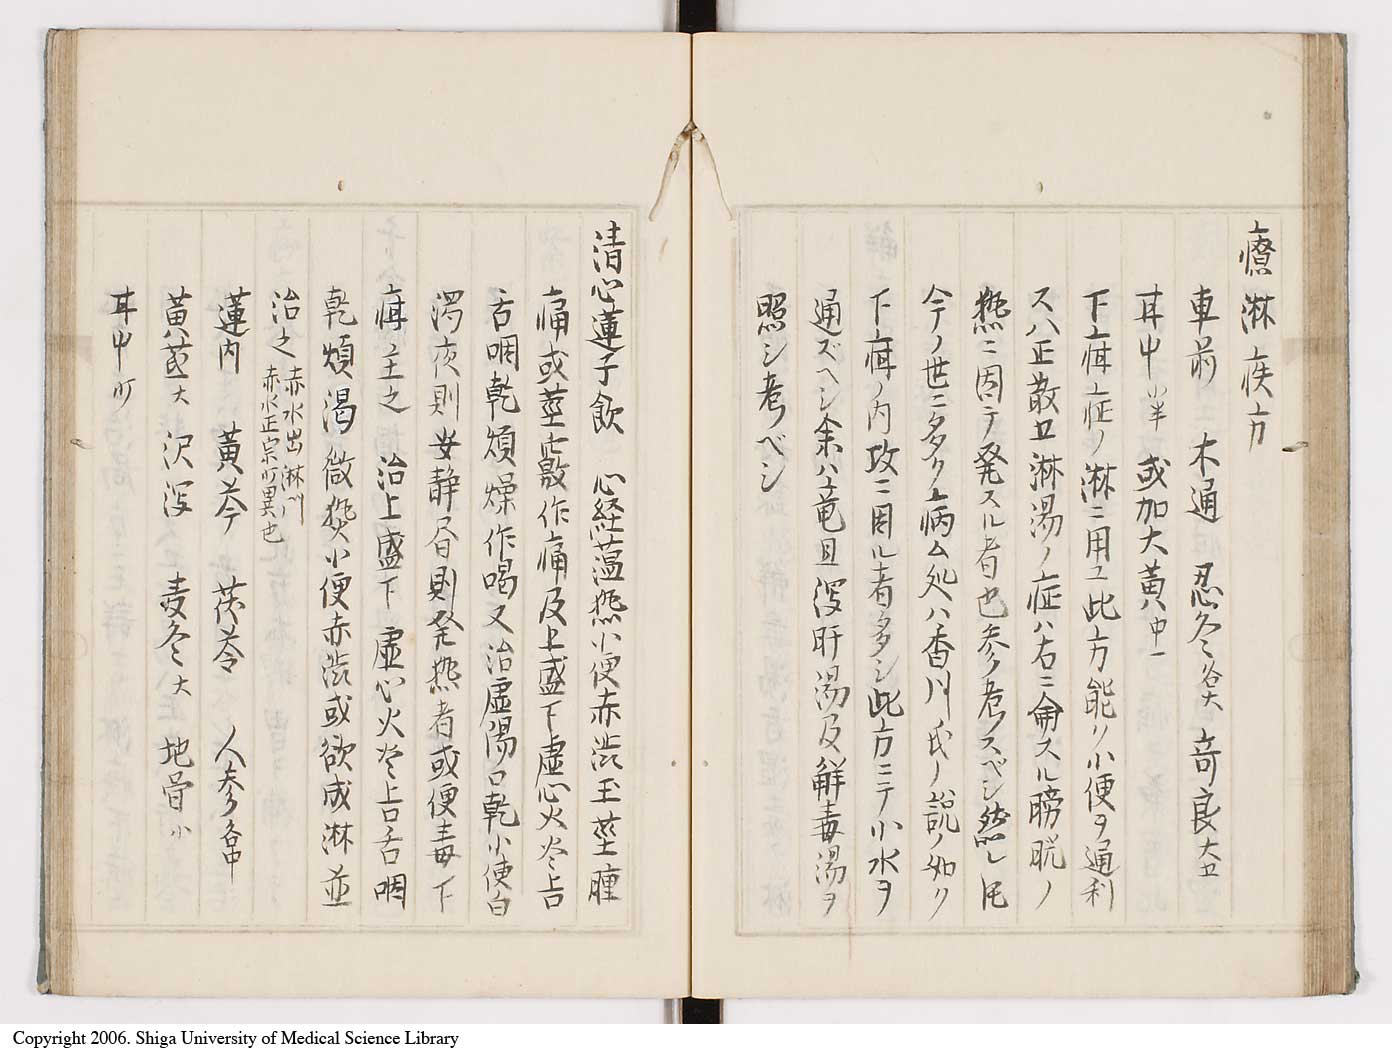 療淋疾方
車前 木通 忍冬各大 奇良大
甘中 小半 或加大黄中
下疳症ノ淋ニ用ユ此方能ク小便ヲ通利
ス八正散 淋湯ノ症ハ右ニ命スル膀胱ノ
熱ニ因テ発スル者也参考スベシ然レ𪜈
今ノ世ニ多ク病ム処ハ香川氏ノ説ノ如ク
下疳ノ内攻ニ因ル者多シ此方ニテ小水ヲ
通ズヘシ余ハ竜胆瀉肝湯及解毒湯ヲ
照シ考フベシ
清心蓮子飲 心経蘊熱小便赤渋玉茎腫
痛或茎 作痛及上盛下虚心火炎上口
舌咽乾煩燥作喝又治虚陽口乾小便白
濁夜則安静昼則発熱者或便毒下
疳主之 治上盛下虚心火炎上口舌咽
乾煩渇微熱小便赤渋或欲成淋並
治之 赤水出淋
赤水正宗 異也
蓮肉 黄芩 茯苓 人参各中
黄茋大 沢瀉 麦冬大 地骨小
甘中
Copyright 2006. Shiga University of Medical Science Library